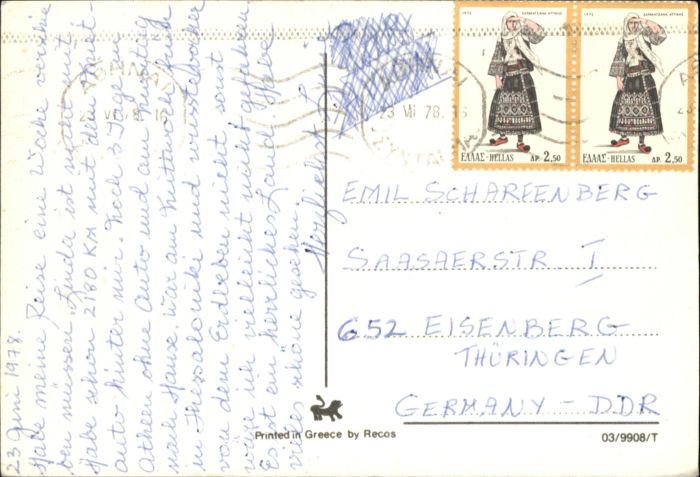 23 Juni 1978.
Habe meine Reise eine Woche verschie-
ben müssen. Linda ist nicht mit.
Habe schon 2180 KM mit dem Miet-
auto hinter mir. Noch 3 Tage in
Athen ohne Auto und am
nach Hause. War am Mittwoch früh
in Thessaloniki und wir
von dem Erdbeben nicht sonst
wäre ich vielleicht nicht gefahren
Es ist ein herrliches Land. Habe
vieles schöne gesehen.
Herzlichst
ΑΘΗΝΑΙ
23 VI 78. 16
1972
ΣΑΡΑΚΑΤΣΑΝΑ ΑΤΤΙΚΗΣ
ΕΛΛΑΣ-HELLAS ΔΡ. 2,50
1972
ΣΑΡΑΚΑΤΣΑΝΑ ΑΤΤΙΚΗΣ
ΕΛΛΑΣ-HELLAS ΔΡ. 2,50
EMIL SCHARFENBERG
SAASAERSTR I
652 EISENBERG
THÜRINGEN
GERMANY - DDR
Printed in Greece by Recos
03/9908/T